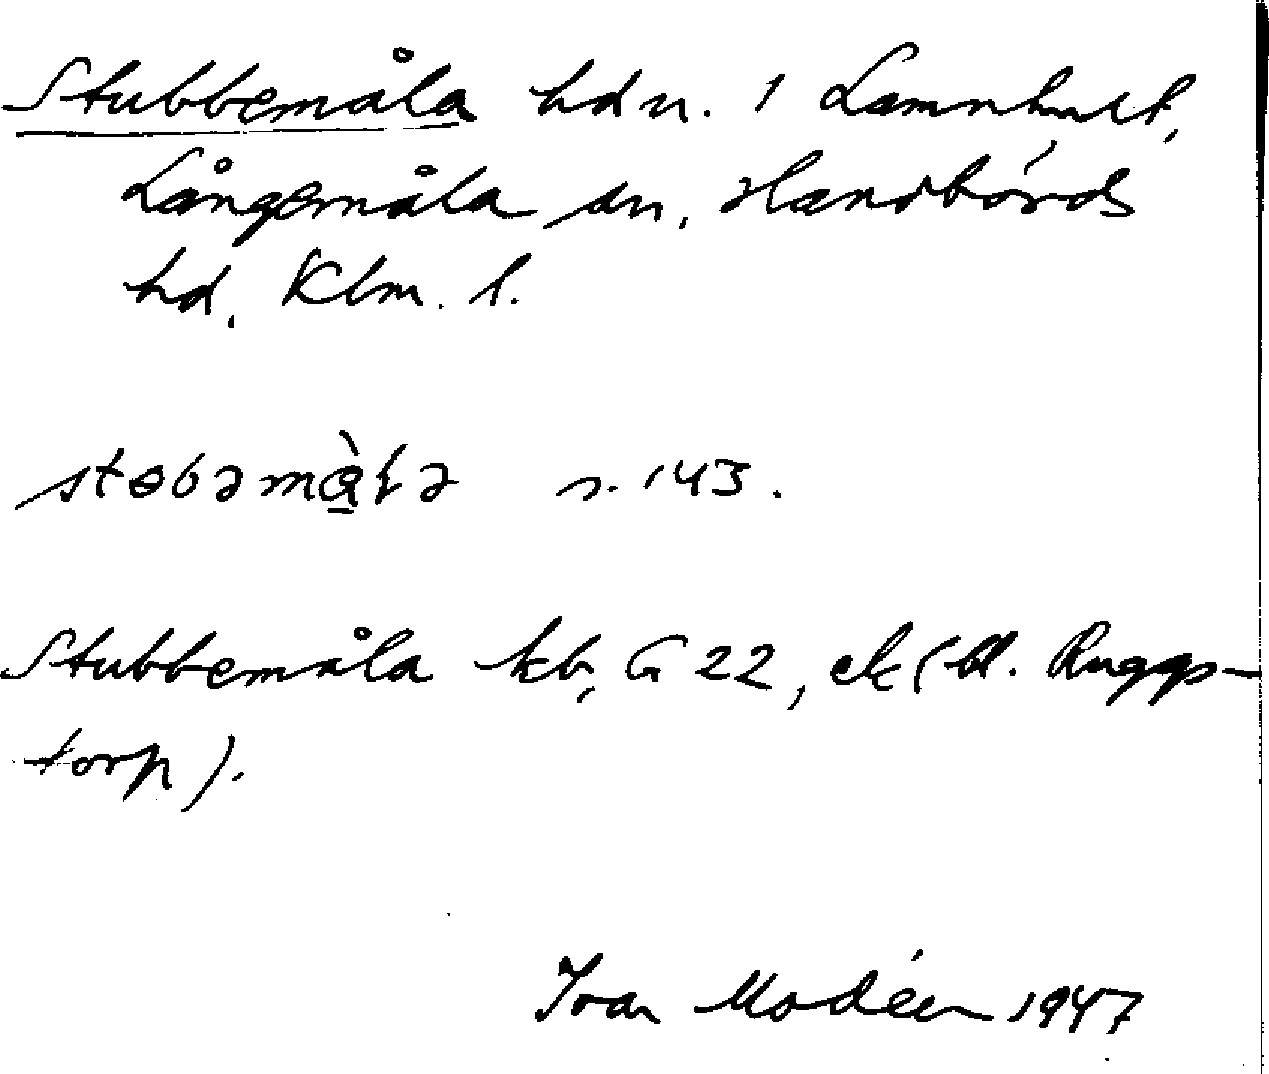 Stubbemåla hdn. 1 Lamnhult,
Långemåla sn, Handbörds
hd. Klm. l.
stɵbəmɑ̀ɫə s. 143.
Stubbemåla kb, G 22, ek (bl. Ruggs-
torp).
Ivar Modéer 1947